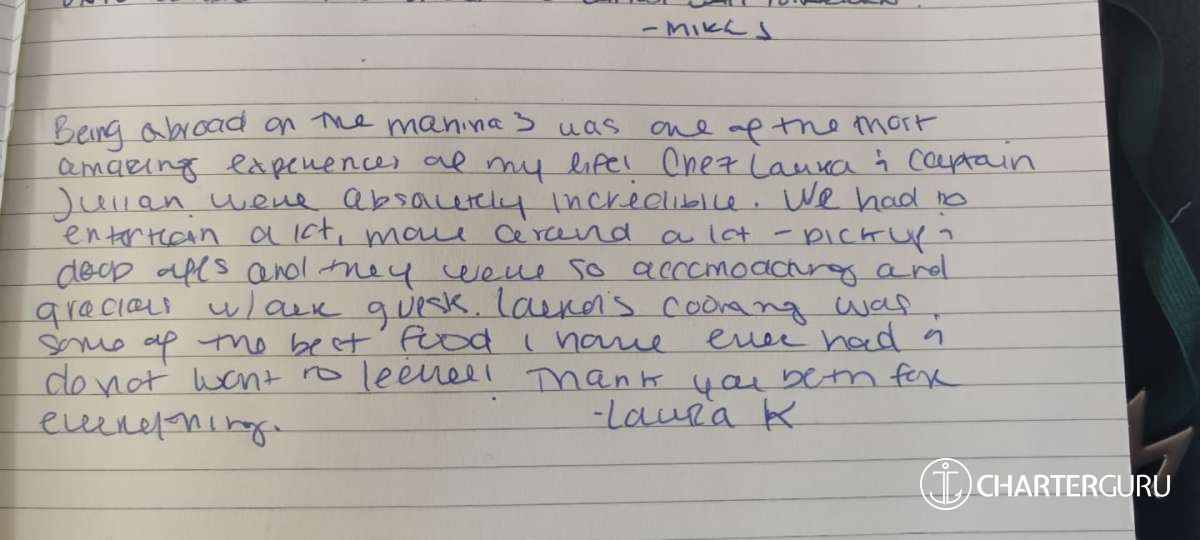 -MIKE S
Being abroad on the marina's was one of the most
amazing experiences of my life! Chef Laura & Captain
Julian were absolutely incredible. We had to
entertain a lot, move around a lot - pickup &
drop offs and they were so accomodating and
gracious w/ our guests. Laura's cooking was
some of the best food I have ever had &
do not want to leave! Thank you both for
everything.
-Laura K
CHARTERGURU